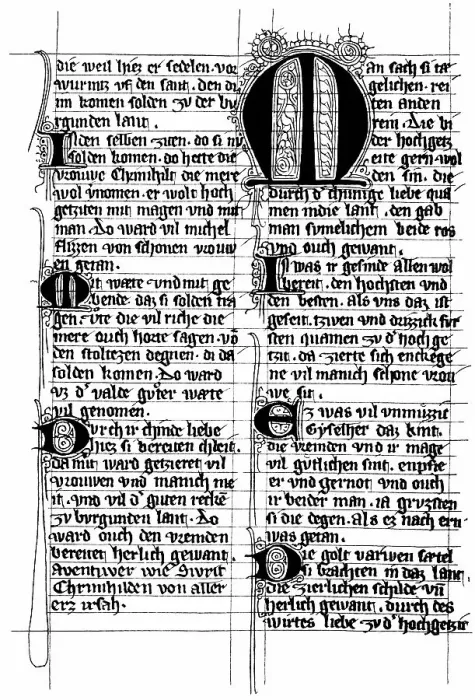 die weil hiez er sedelen. vor
wurmz vf den sant. den di
im komen solden zv der bv
rgunden lant.
In den selben ziten. do si nv
solden komen. do hette die
vrouwe Chrimhilt die mere
wol vnomen. er wolt hoch
geziten mit magen vnd mit
man. Do ward vil michel
flizzen von schonen vrouw
en getan.
Mit wæte vnd mit ge
bende. daz si solden tra
gen. vte die vil riche die
mere ouch horte sagen. vō
den stoltezen degnen. di da
solden komen. Do ward
vz d' valde guter wæte
vil genomen.
Durch ir chinde liebe
hiez si bereiten chleit.
da mit ward getzieret vil
vrouwen vnd manich me
it. vnd vil d' guten recke
zv burgunden lant. Do
ward ouch den vremden
bereitet herlich gewant.
Aventiwer wie Sivrit
Chrimhilden von aller
erz ersah.
Man sach si tæ
gelichen. rei
ten anden
rem. Die bi
der hochgetz
eite gern wol
den sin. die
durch d' chunige liebe qua
men in die lant. den gab
man sumelichem beide ros
vnd ouch gewant.
Ir was ir gesinde allen wol
bereit. den hochsten vnd
den besten. als vns daz ist
geseit. tzwen vnd drizzick fvr
sten quamen zv d' hoch ge
tzit. da zierte sich enckege
ne vil manich schone vrou
we sit.
Ez was vil vnmuzic
Gyselher daz kint.
die vremden vnd ir mage
vil gutlichen sint. enpfie
er vnd gernot vnd ouch
ir beider man. ia gruzten
si die degen. als ez nach ern
was getan.
Die golt varwen sætel
si brachten in daz lant.
die zierlichen schilde vn̄
herlich gewant. durch des
wirtes liebe zv d' hochgetzit